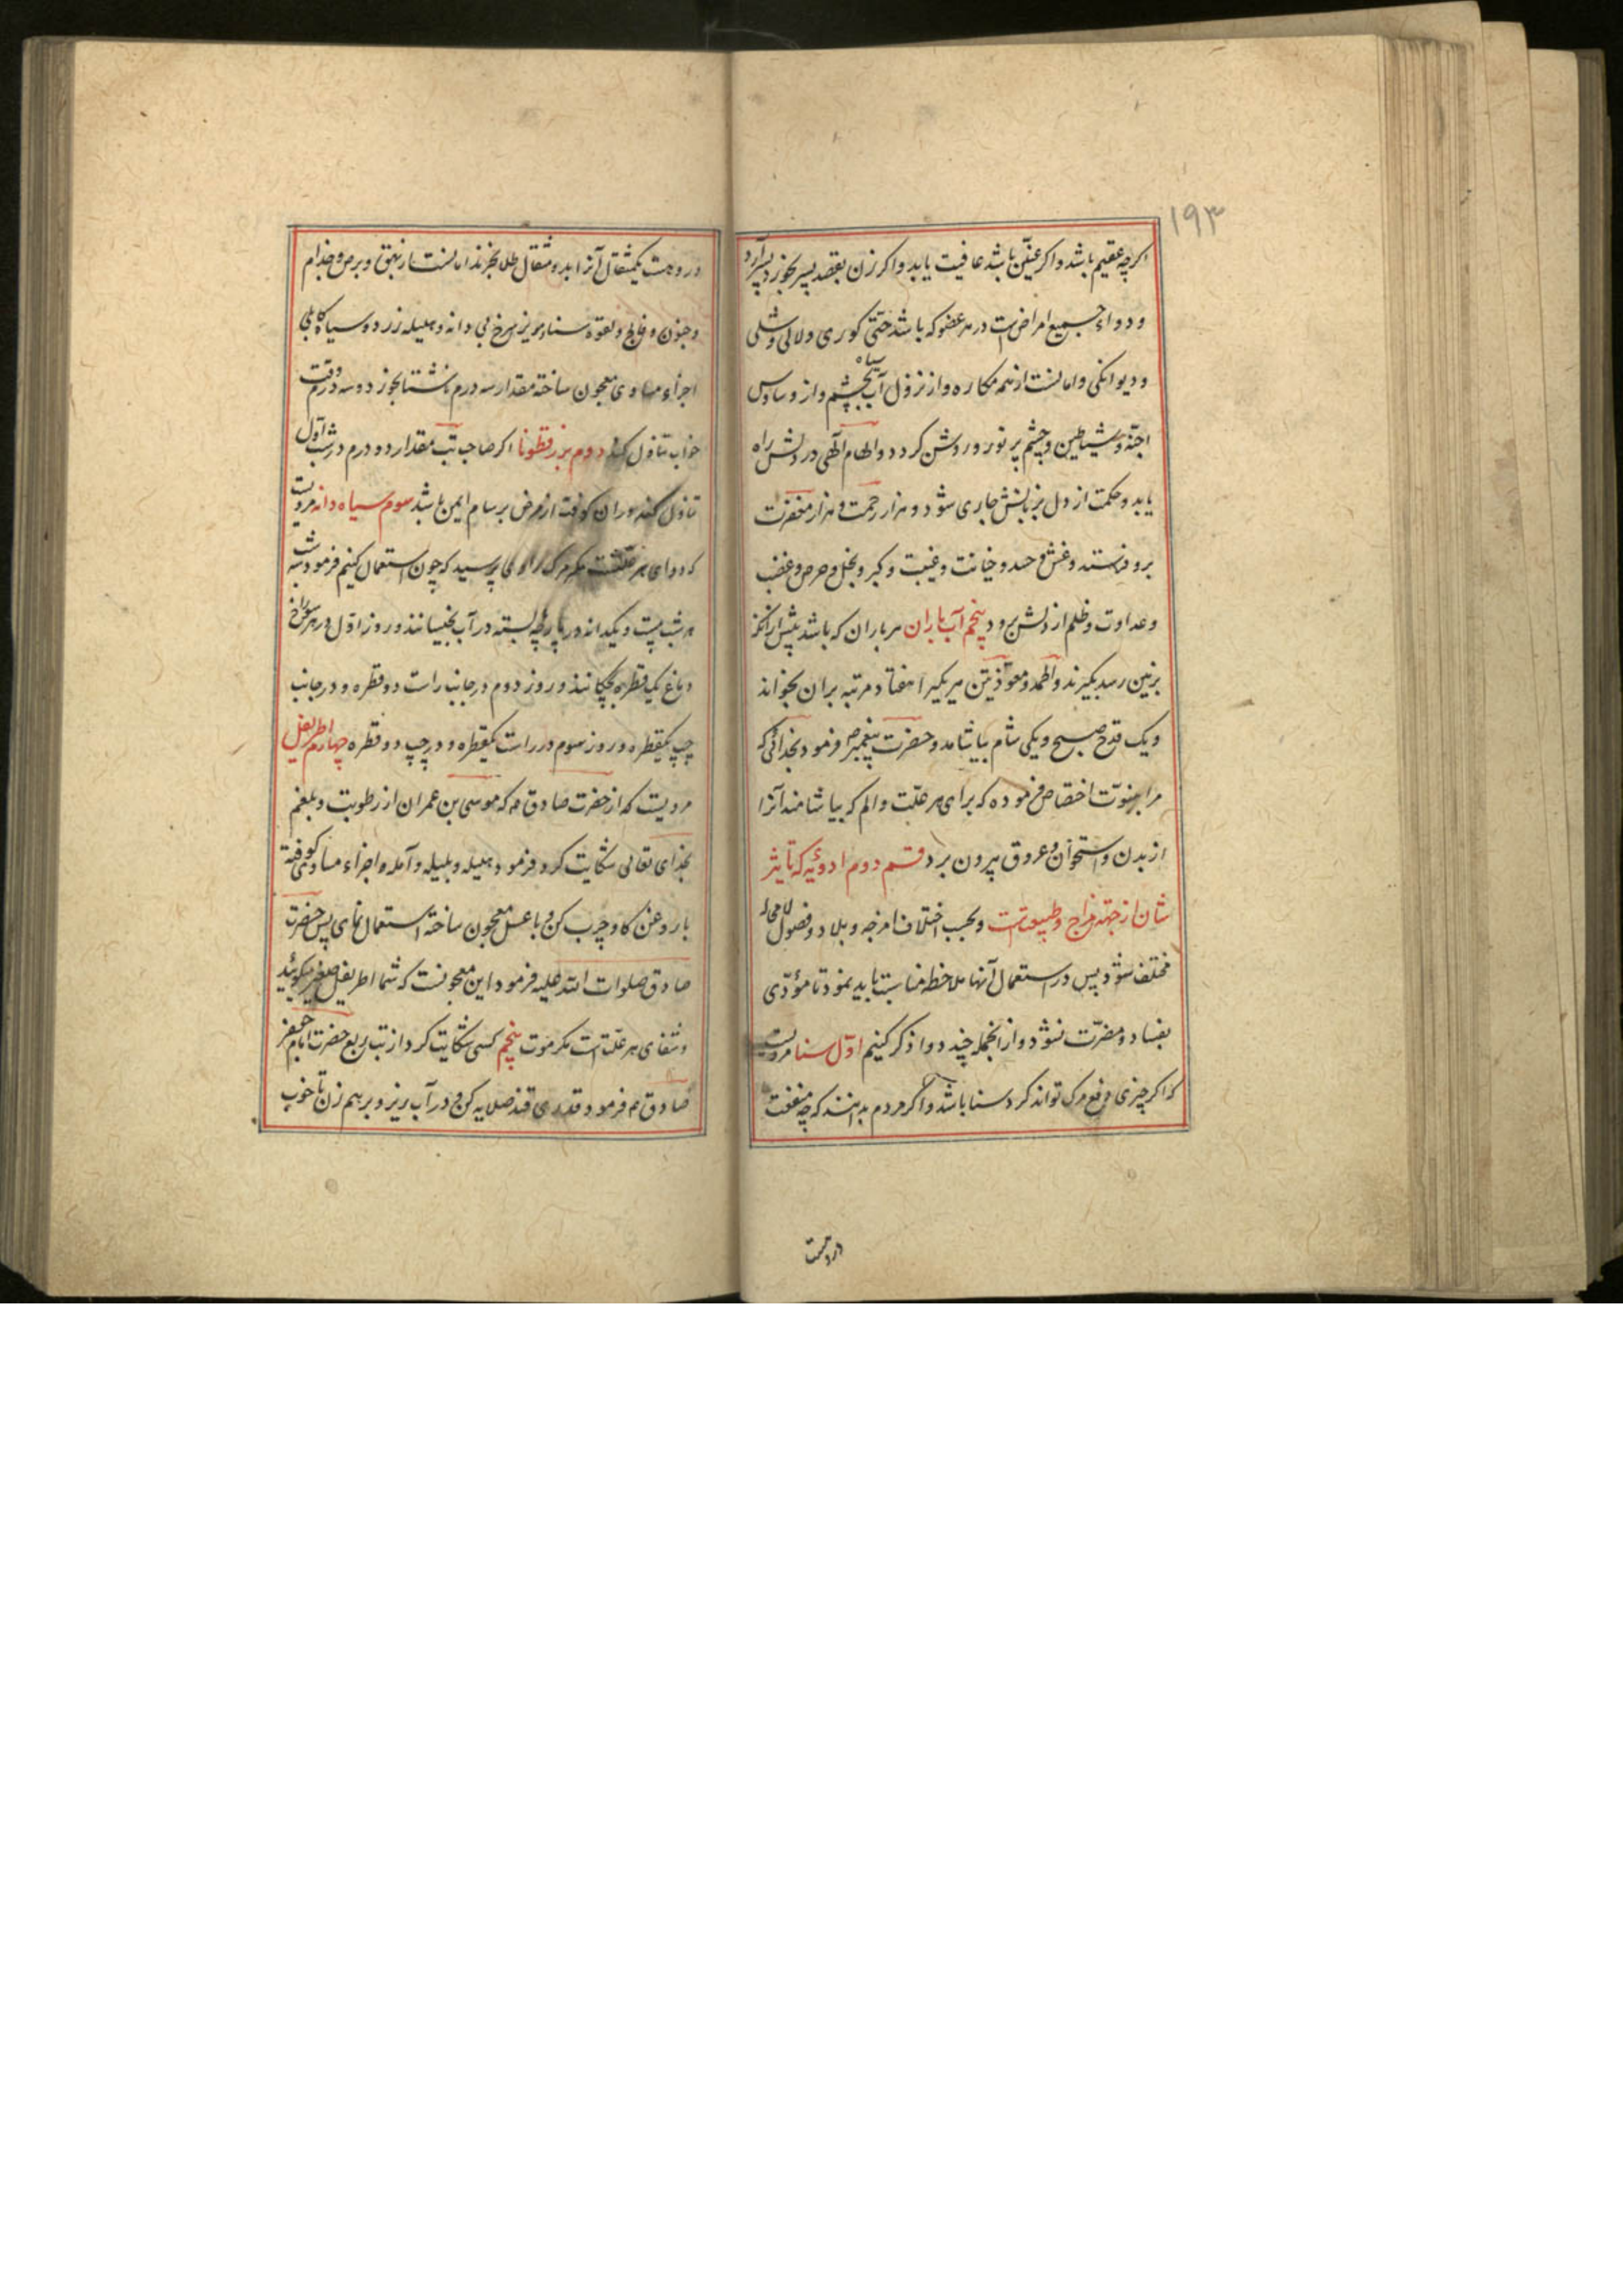 ۱۹۳
اکرچه عقیم باشد واکر عنّین باشد عافیت یابد واکر زن بقصد پسر بخورد پسر آرد
ودواء جمیع امراض است در هر عضو که باشد حتّی کوری ولالی وشلی
ودیوانکی وامانست از همه مکاره واز نزول آب سیاه بچشم واز وساوس
اجنّه وشیاطین وچشم پر نور وروشن کردد والهام آلهی در دلش راه
یابد وحکمت از دل بزبانش جاری شود وهزار رحمت وهزار مغفرت
برو فرستد وغش وحسد وخیانت وغیبت وکبر وبخل وحرص وغضب
وعداوت وظلم از دلش برود پنجم آب باران هر باران که باشد پیش از آنکه
بزمین رسد بکیرند والحمد ومعوّذتین هر یکیرا هفتاد مرتبه بران بخواند
ویک قدح صبح ویکی شام بیاشامد وحضرت پیغمبر ص فرمود بخدائی که
مرا بنبوّت اختصاص فرموده که برای هر علّت والم که بیاشامند آنرا
از بدن واستخوان وعروق بیرون برد قسم دوم ادویّه که تأثیر
شان از جهة مزاج وطبیعتست وبحسب اختلاف امزجه وبلاد وفصول لامحاله
مختلف شود پس در استعمال آنها ملاحظه مناسبت باید نمود تا مؤدّی
بفساد ومضرّت نشود واز انجمله چند دوا ذکر کنیم اوّل سنا مرویست
که اکر چیزی دفع مرک تواند کرد سنا باشد واکر مردم بدانند که چه منفعت
دروست
دروهست یکمثقال آنرا بدو مثقال طلا بخرند امانست از بهق وبرص وجذام
وجنون وفالج ولقوه سناء مویز سرخ بی دانه وهلیله زرد وسیاه کابلی
اجزاء مساوی معجون ساخته مقدار سه درم ناشتا بخورد وسه درم وقت
خواب تناول کند دوم بزرقطونا اکر صاحب تب مقدار دو درم در شب اوّل
تناول کند دران کوفت از مرض برسام ایمن باشد سوم سیاه دانه مرویست
که دوای هر علّتست مکر مرک راوی پرسید که چون استعمال کنیم فرمود سه شب
هر شب بیست ویکدانه در پارچه بسته در آب بخیسانند وروز اوّل در هر سوراخ
دماغ یک قطره بچکانند وروز دوم در جانب راست دو قطره ودر جانب
چپ یکقطره وروز سوم در راست یکقطره ودر چپ دو قطره چهارم اطریفل
مرویست که از حضرت صادق ع که موسی بن عمران از رطوبت وبلغم
بخدای تعالی شکایت کرد فرمود هلیله وبلیله وآمله واجزاء مساوی کوفته
با روغن کاو چرب کن وبا عسل معجون ساخته استعمال نمای پس حضرت
صادق صلوات الله علیه فرمود این معجونست که شما اطریفل صغیر میکوئید
وشفای هر علّت است مکر موت پنجم کسی شکایت کرد از تب ربع حضرت امام جعفر
صادق ع فرمود قدری قند صلایه کن ودر آب ریز وبرهم زن تا خوب